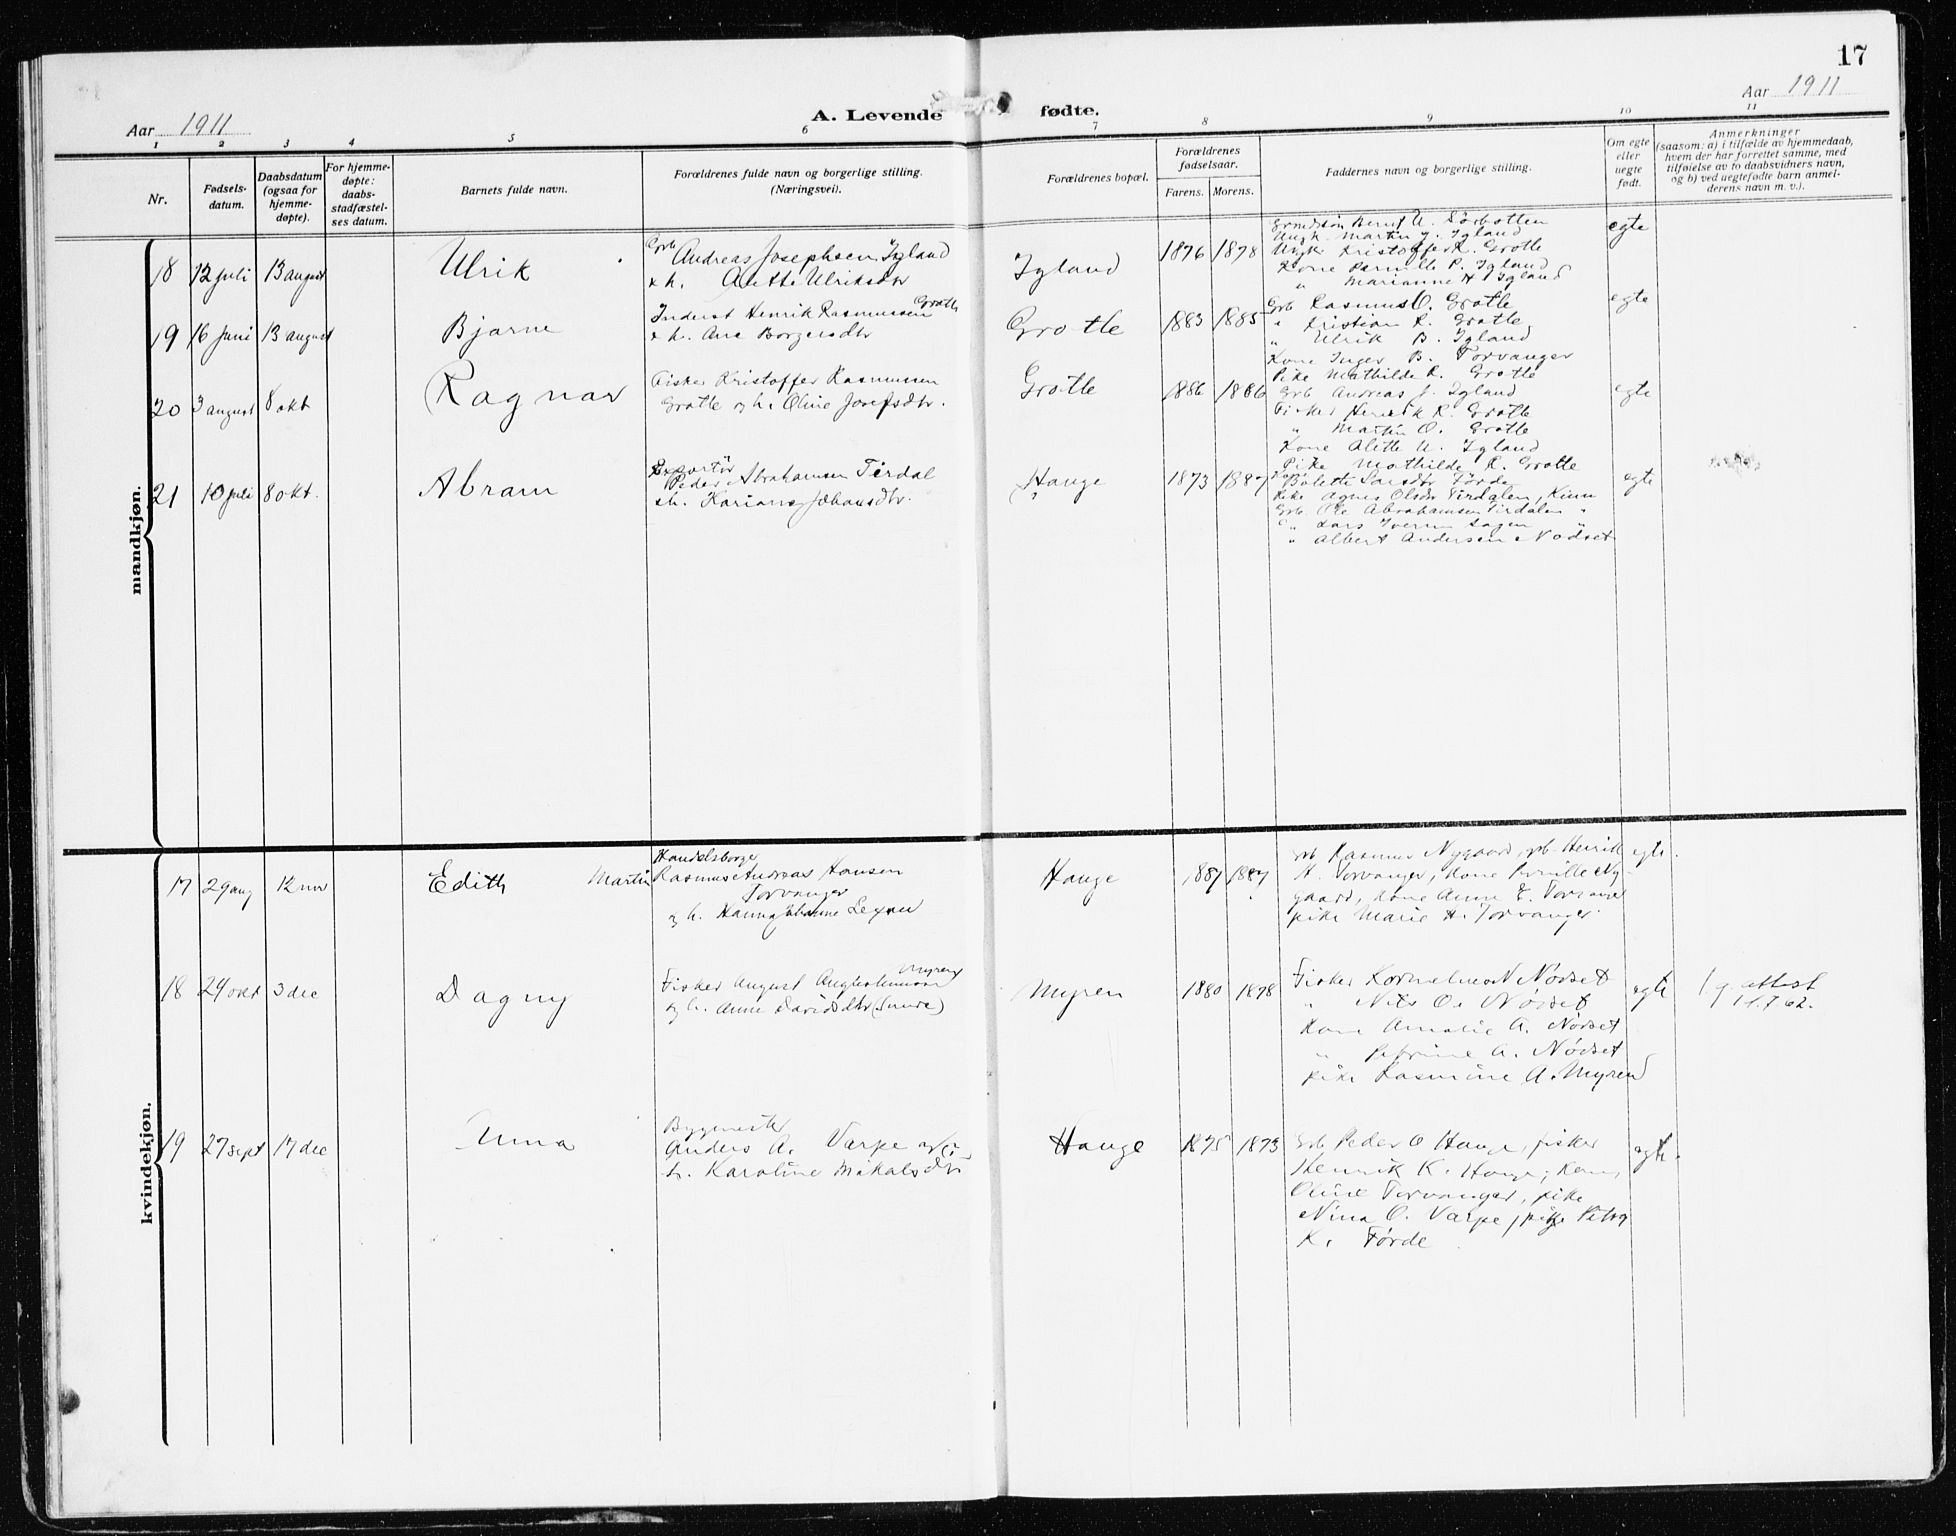 17
Aar 1911
A. Levende fødte.
Aar 1911
1 2 3 4 5 6 7 8 9 10 11
Nr.
Fødsels-
datum.
Daabsdatum
(ogsaa for
hjemme-
døpte).
For hjemme-
døpte:
daabs-
stadfæstel-
ses datum.
Barnets fulde navn.
Forældrenes fulde navn og borgerlige stilling.
(Næringsvei).
Forældrenes bopæl.
Forældrenes
fødselsaar.
Farens. Morens.
Faddernes navn og borgerlige stilling.
Om egte
eller
uegte
født.
Anmerkninger
(saasom: a) i tilfælde av hjemmedaab,
hvem der har forrettet samme, med
tilføielse av to daabsvidners navn,
og b) ved uegtefødte barn anmel-
derens navn m. v.).
mandkjøn.
18 12 juli 13 august Ulrik
Grb Andreas Josephsen Igland
& h. Alette Ulriksdtr
Igland 1876 1878
Bernt U. Sørbotten
Ungk. Martin J. Igland
Ungk. Kristoffer R. Grotle
Kone Pernille P. Igland
" Marianne H Igland
egte
19 16 juni 13 august Bjarne
Inderst Henrik Rasmussen Grotle
& h. Ane Borgersdtr
Grotle 1883 1885
Grb Rasmus O. Grotle
" Kristian R. Grotle
" Ulrik B. Igland
Kone Inger B. Torvanger
Pike Mathilde R. Grotle
egte
20 3 august 8 okt Ragnar
Fisker Kristoffer Rasmussen
Grotle og h. Oline Josefsdtr.
Grotle 1886 1886
Grb Andreas J. Igland
Fisker Henrik R. Grotle
" Martin O. Grotle
Kone Alette U. Igland
Pike Mathilde R. Grotle
egte
21 10 juli 8 okt. Abram
Exportør
Peder Abrahamsen Tirdal
& h. Kariane Johansdtr.
Hauge 1873 1887
Bolette Larsdtr Førde
Pike Agnes Olsdtr Tirdalen, Kinn
Grb. Ole Abrahamsen Tirdalen "
" Lars Iversen "
" Albert Andersen Nødset
egte
kvindekjøn.
17 29 aug 12 nov Edith
Handelsborger
Martin Rasmus Andreas Hansen
Torvanger
og h. Hanna Johanne Lexau
Hauge 1887 1887
Grb Rasmus Nygaard, grb. Henrik
H. Torvanger, kone Pernille Ny-
gaard, kone Anne E. Torvanger
pike Marie H. Torvanger.
egte.
18 29 okt 3 dec Dagny
Fisker August Myren
og h. Anne Davidsdtr
Myren 1880 1878
Fisker Kornelius N Nødset
" Nils O. Nødset
Kone Amalie A. Nødset
" Petrine A. Nødset
pike Rasmine A. Myren
egte
1 g. attest
62.
19 27 sept 17 dec Unna
Bygmester
Anders A. Varpe og
h. Karoline Mikalsdtr
Hauge 1875 1873
Grb. Peder O Hauge, fisker
Henrik K. Hauge, kone
Oline Torvanger, pike
Nina O. Varpe, pike
K. Førde
egte.